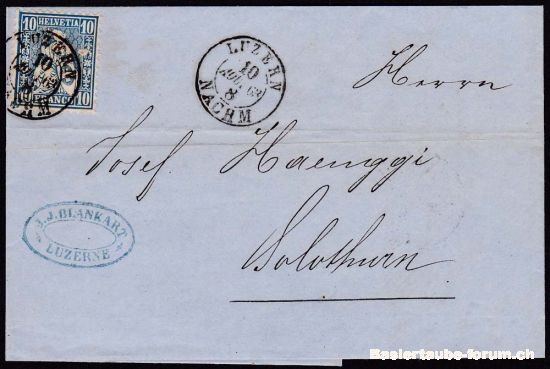 10 HELVETIA 10
FRANCO 10
LUZERN
10
8
NACHM
LUZERN
10
8
NACHM
Herrn
Josef Haenggi
Solothurn
J.J. BLANKART
LUZERNE
Baslertaube-forum.ch